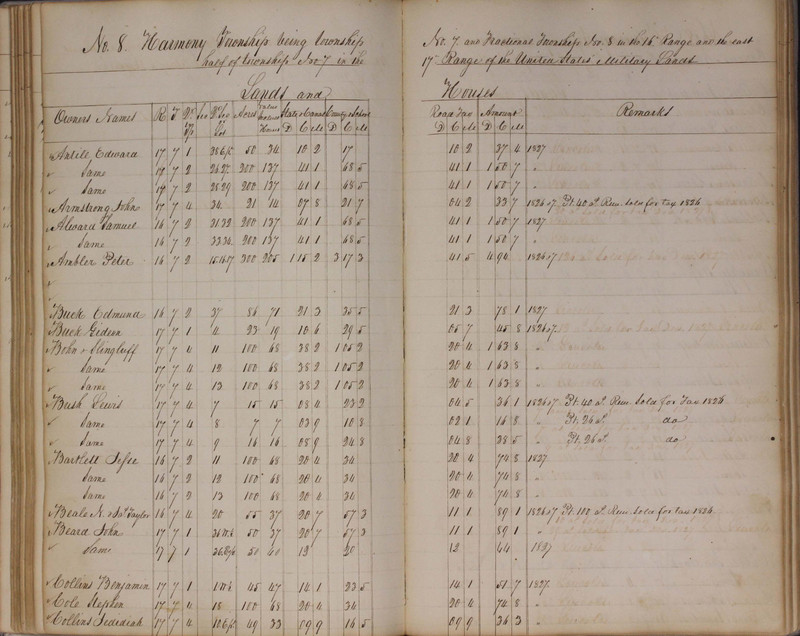 No. 8. Harmony Township being township No. 7. and Fractional Township No. 8 in the 16th Range and the east
half of township No 7 in the 17th Range of the United States Military Lands
Lands and Houses
Owners Names R T Qr Tp Sec Lot Acres Value Houses State & Canal D C County & School D C Road Tax D C Amount D C Remarks
Antile Edward 17 7 1 50 34 10 2 17 10 2 37 4 1827
Same 17 7 2 26 27 200 137 41 1 68 5 41 1 1 50 7 "
Same 17 7 2 28 29 200 137 41 1 68 5 41 1 1 50 7 "
Armstrong John 17 7 4 34 21 14 07 8 21 7 04 2 33 7 1826 & 7 Pt. 40 as. Rem. sold for tax 1826
Alward Samuel 16 7 2 31 32 200 137 41 1 68 5 41 1 1 50 7 1827
Same 16 7 2 33 34 200 137 41 1 68 5 41 1 1 50 7 "
Ambler Peter 16 7 2 15 16 17 300 205 1 15 2 3 17 3 41 5 4 94 1826 & 7
Buck Edmund 16 7 2 37 86 71 21 3 35 5 21 3 78 1 1827
Buck Gideon 17 7 1 4 23 19 10 6 29 5 05 7 45 8 1826 & 7
Bohn & Slingluff 17 7 4 11 100 68 38 2 1 05 2 20 4 1 63 8 "
Same 17 7 4 12 100 68 38 2 1 05 2 20 4 1 63 8 "
Same 17 7 4 13 100 68 38 2 1 05 2 20 4 1 63 8 "
Bush Lewis 17 7 4 7 15 15 08 4 23 2 04 5 36 1 1826 & 7 Pt. 40 as. Rem. sold for Tax 1826
Same 17 7 4 8 7 7 03 9 10 8 02 1 16 8 " Pt. 26 as. do
Same 17 7 4 9 16 16 08 9 24 8 04 8 38 5 " Pt. 26 as. do
Bartlett Jesse 16 7 2 11 100 68 20 4 34 20 4 74 8 1827
Same 16 7 2 12 100 68 20 4 34 20 4 74 8 "
Same 16 7 2 13 100 68 20 4 34 20 4 74 8 "
Beale N. & Taylor 16 7 4 20 55 37 20 7 57 3 11 1 89 1 1826 & 7 Pt. 100 as. Rem. sold for tax 1826
Beard John 17 7 1 50 37 20 7 57 3 11 1 89 1 "
Same 17 7 1 50 40 12 20 12 44 1827
Collins Benjamin 17 7 1 45 47 14 1 23 5 14 1 51 7 1827
Cole Stephen 17 7 4 18 100 68 20 4 34 20 4 74 8 "
Collins Jedediah 17 7 4 49 33 09 9 16 5 09 9 36 3 "